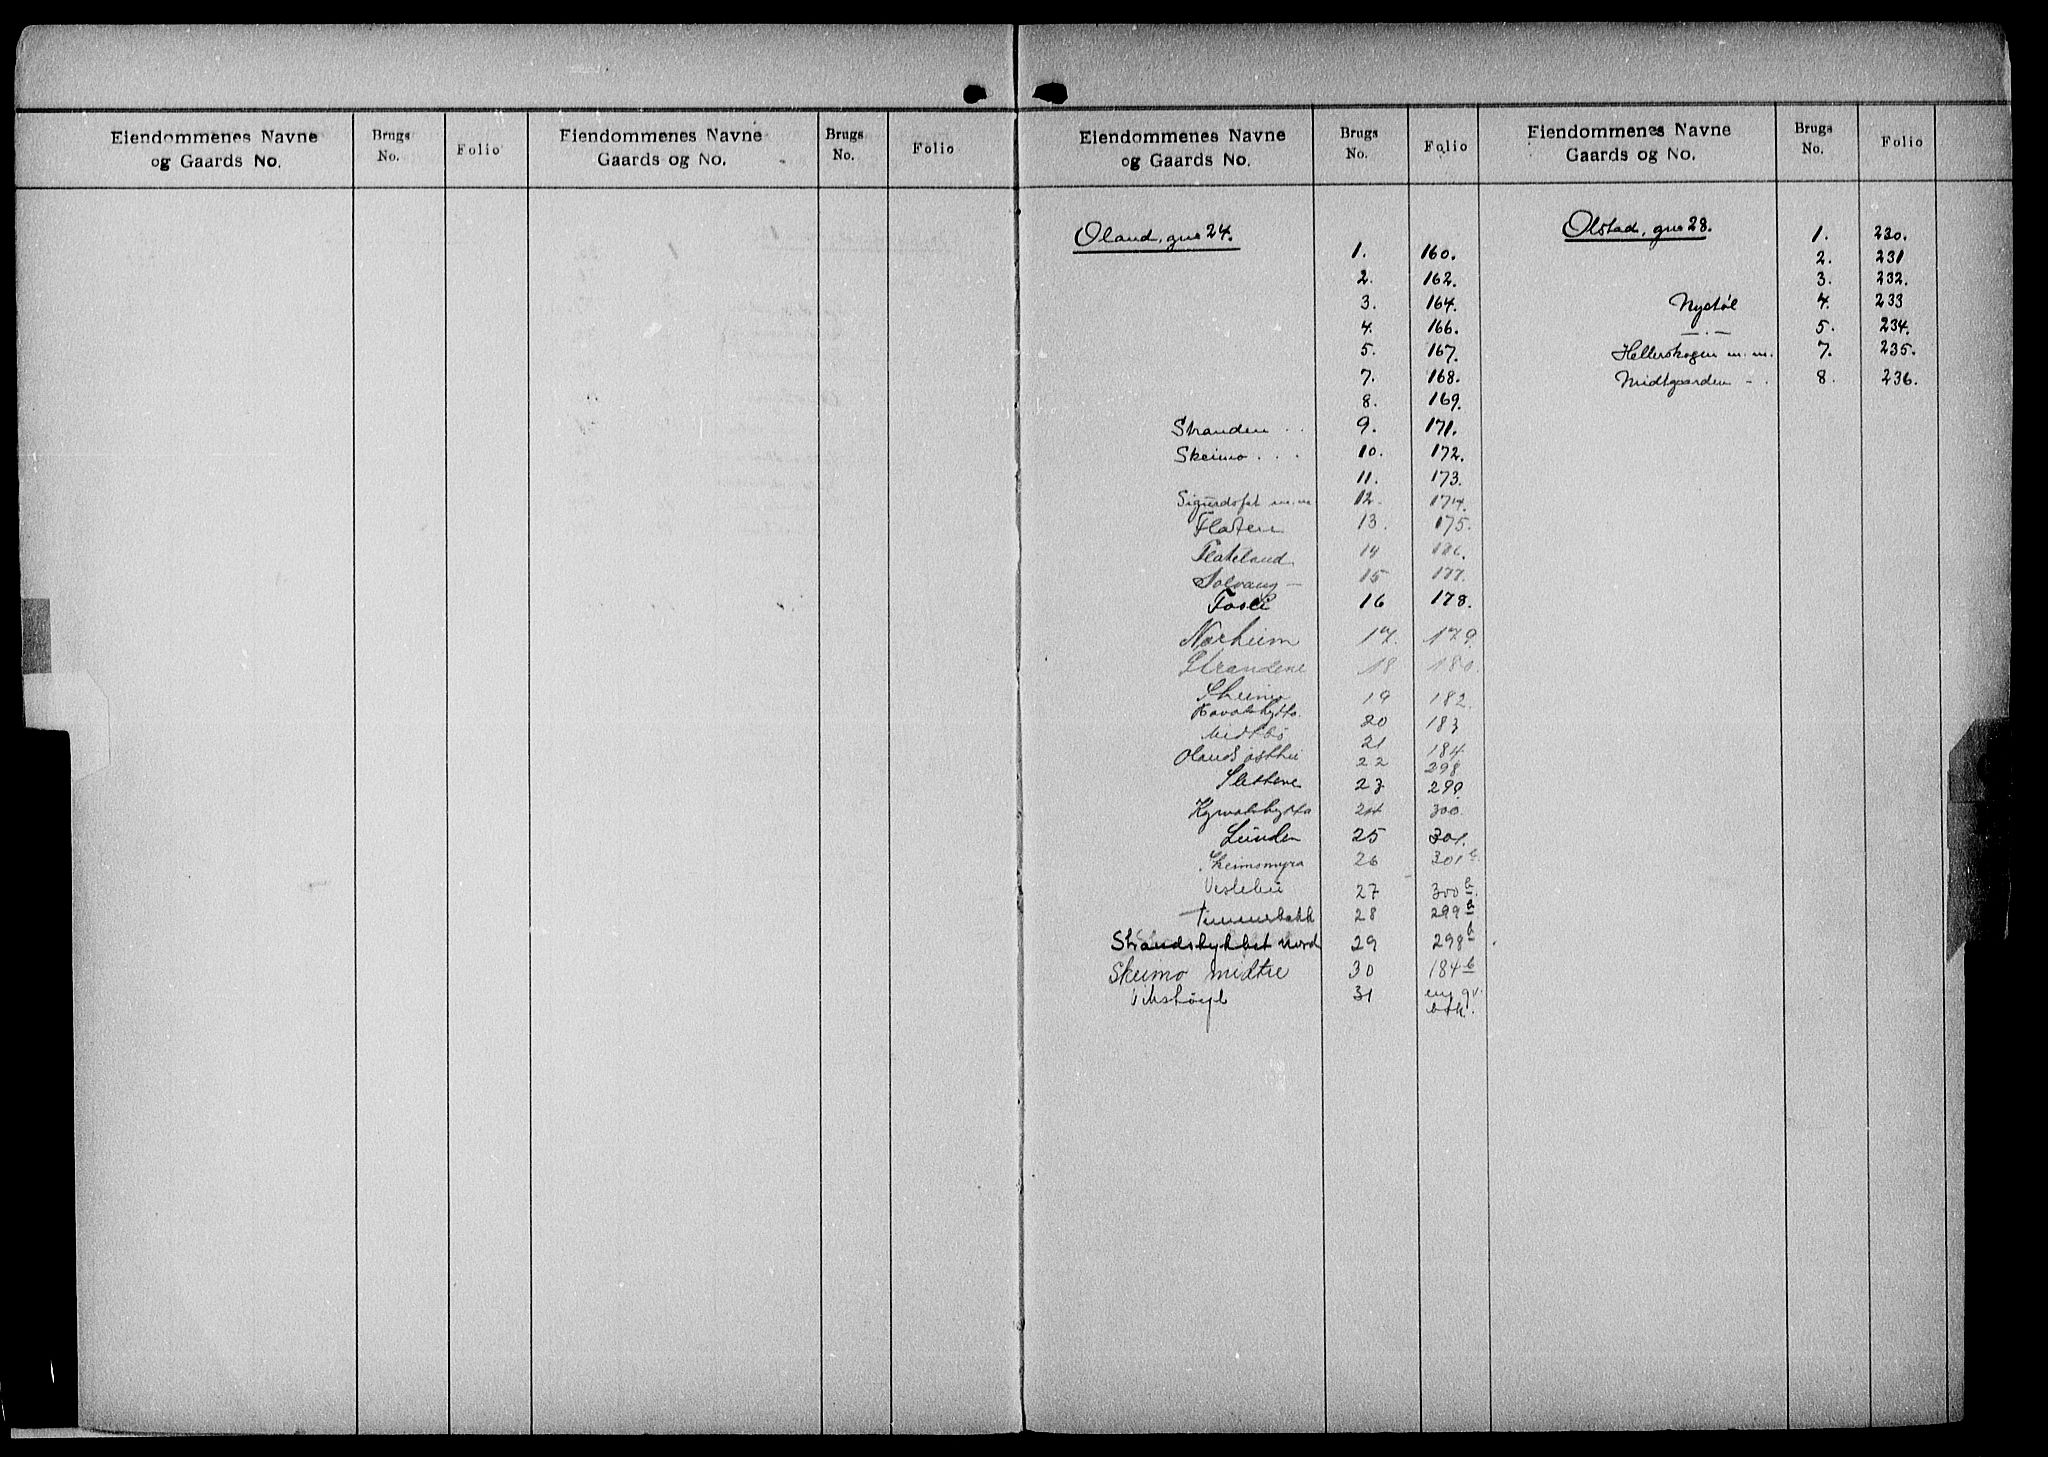 Eiendommenes Navne og Gaards No. Brugs No. Folio Eiendommenes Navne Gaards og No. Brugs No. Folio
Eiendommenes Navne og Gaards No. Brugs No. Folio Eiendommenes Navne Gaards og No. Brugs No. Folio
Oland, gno 24.
1. 160.
2. 162.
3. 164.
4. 166.
5. 167.
7. 168.
8. 169.
Stranden . . 9. 171.
Skeimo . . . 10. 172.
11. 173.
Sigurdsfet m.m 12. 174.
Flaten 13. 175.
Flateland 14 176.
Solvang — 15 177.
Fosli 16 178.
Norheim 17. 179.
Strandene 18 180.
Skeimo 19 182.
20 183
Midtbø 21 184
Oland østhei 22 298
Slettene 23 299
24 300
Lunden 25 301.
Skeimsmyra 26 301 b.
Veslehei 27 300 b.
Timmerbakk 28 299 b
Strandstykket nord 29 298 b
Skeimo midtre 30 184 b
31
Olstad, gno 28.
1. 230.
2. 231
3. 232.
Nystøl 4. 233
— . — 5. 234.
Hellerskogen m.m. 7. 235.
Midtgaarden - . 8. 236.